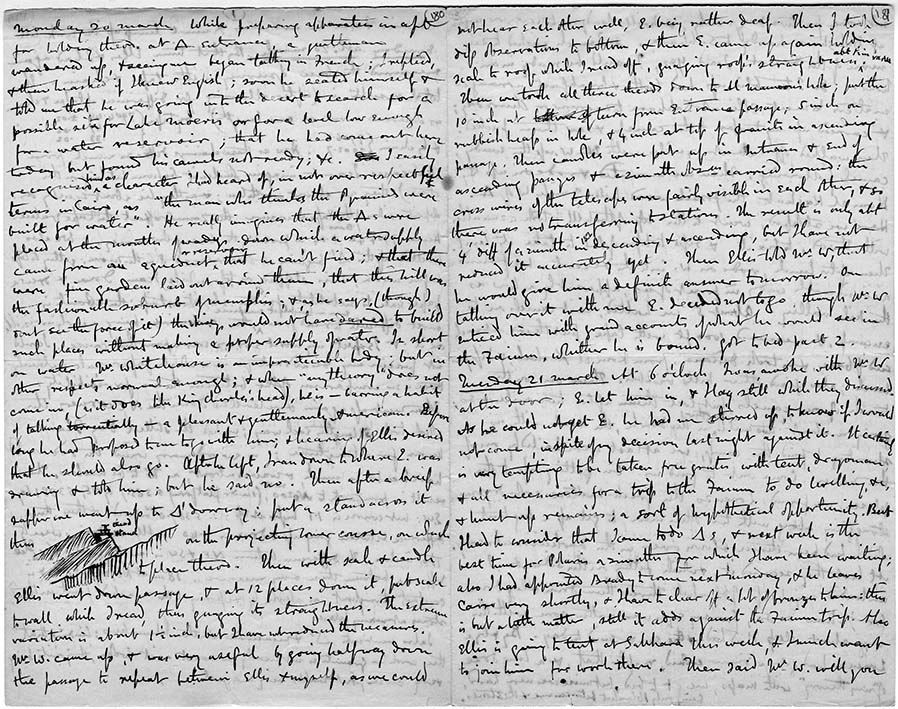 180
Monday 20 March. While preparing apparatus in aft
for holding theod. at Δ entrance, a gentleman
wandered up, & seeing me began talking in French; I replied,
& then he asked if I knew English; soon he seated himself &
told me that he was going into the desert to search for a
possible site for Lake Moeris or for a land low enough
for a water reservoir; that he had come out here
today but found his camels not ready; &c. I easily
recognised a character I had heard of, in not over respectful
terms in Cairo as "the man who thinks the Pyramids were
built for water". He really imagines that the Δs were
placed at the mouths of wadis down which a water supply
came from an aqueduct that he can't find; & that there
were fine gardens laid out around them, that this hill was
the fashionable suburb of Memphis, & as he says, (though I
don't see the force of it) the kings would not have dared to build
such places without making a proper supply of water. In short
on water Mr Whitehouse is an impracticable body; but in
other respects normal enough; & when any theory does not
come in, (as it does like King Charles's head), he is – barring a habit
of talking torrentially – a pleasant & gentlemanly American. Before
long he had proposed to me to go with him; & hearing of Ellis desired
that he should also go. After he left, I ran down to where E. was
drawing & told him; but he said no. Then after a brief
supper we went up to Δ doorway; put a stand across it
thus
theod
stand
on the projecting lower course, on which
to place theod. Then with scale & candle
Ellis went down passage, & at 12 places down it, put scale
to wall, which I read, thus gauging its straightness. The extreme
variation is about 1½ inch, but I have not reduced the measures.
Mr W. came up, & was very useful by going half way down
the passage to repeat between Ellis & myself, as we could
181
not hear each other well, E. being rather deaf. Then I took
dip observations to bottom, & then E. came up again holding
scale to roof which I read off, gauging roof's straightness,
Then we took all three theods down to Al Mamoun's hole; put the
10 inch at turn from Entrance passage, 5 inch on
rubbish heap in hole & 4 inch at top of granite in ascending
passage. Then candles were put up in Entrance & End of
ascending passages & azimuth carried round; the
cross wires of the telescopes were fairly visible in each other, & so
there was no transferring to stations. The result is only abt
4' diff of azimuth in descending & ascending, but I have not
reduced it accurately yet. Then Ellis told Mr W. that
he would give him a definite answer tomorrow. On
talking over it with me E. decided not to go though Mr W
enticed him with grand accounts of what he would see in
the Faium, whither he is bound. Got to bed past 2.
Tuesday 21 March At 6 o'clock I was awoke with Mr W.
at the door; E. let him in, & I lay still while they discussed.
As he could not get E. he had me stirred up to know if I would
not come, in spite of my decision last night against it. It certainly
is very tempting to be taken free gratis with tent, dragoman
& all necessaries for a trip to the Faium to do levelling, &c,
& hunt up remains; a sort of hypothetical opportunity. But
I had to consider that I came to do Δs, & next week is the
best time for Polaris azimuth for which I have been waiting;
also I had appointed Brady to come next Monday, & he leaves
Cairo very shortly, & I have to clear off a lot of bronze to him: this
is but a little matter, still it adds against the Faium trip. Also
Ellis is going to tent at Sakkara this week, & I much want
to join him for work there. Then said Mr W. will you